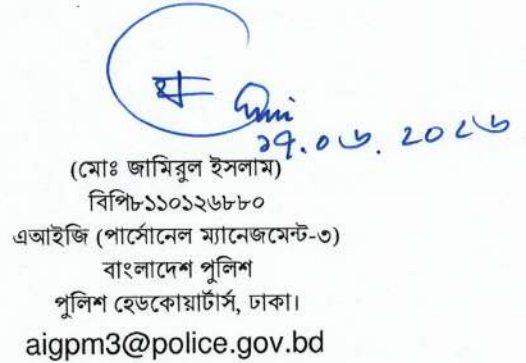 ১৭.০৬.২০২৬
(মোঃ জামিরুল ইসলাম)
বিপি৮১১০১২৬৮৮০
এআইজি (পার্সোনেল ম্যানেজমেন্ট-৩)
বাংলাদেশ পুলিশ
পুলিশ হেডকোয়ার্টার্স, ঢাকা।
aigpm3@police.gov.bd